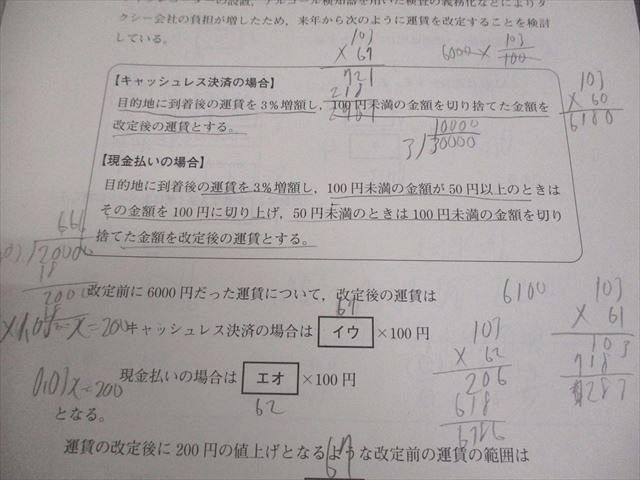 コーダーの設置，アルコール検知器を用いた検査の義務化などによりタ
クシー会社の負担が増したため，来年から次のように運賃を改定することを検討
している。
103
× 67
721
6000 × 103/100
【キャッシュレス決済の場合】
目的地に到着後の運賃を3％増額し，100円未満の金額を切り捨てた金額を
改定後の運賃とする。
103
× 60
6180
10000
3 30000
【現金払いの場合】
目的地に到着後の運賃を3％増額し，100円未満の金額が50円以上のときは
その金額を100円に切り上げ，50円未満のときは100円未満の金額を切り
捨てた金額を改定後の運賃とする。
666
20000
18
200
改定前に6000円だった運賃について，改定後の運賃は
6100
61
キャッシュレス決済の場合は イウ ×100円
103
× 62
206
618
103
× 61
103
現金払いの場合は エオ ×100円
62
0.03x=200
となる。
運賃の改定後に200円の値上げとなるような改定前の運賃の範囲は
67